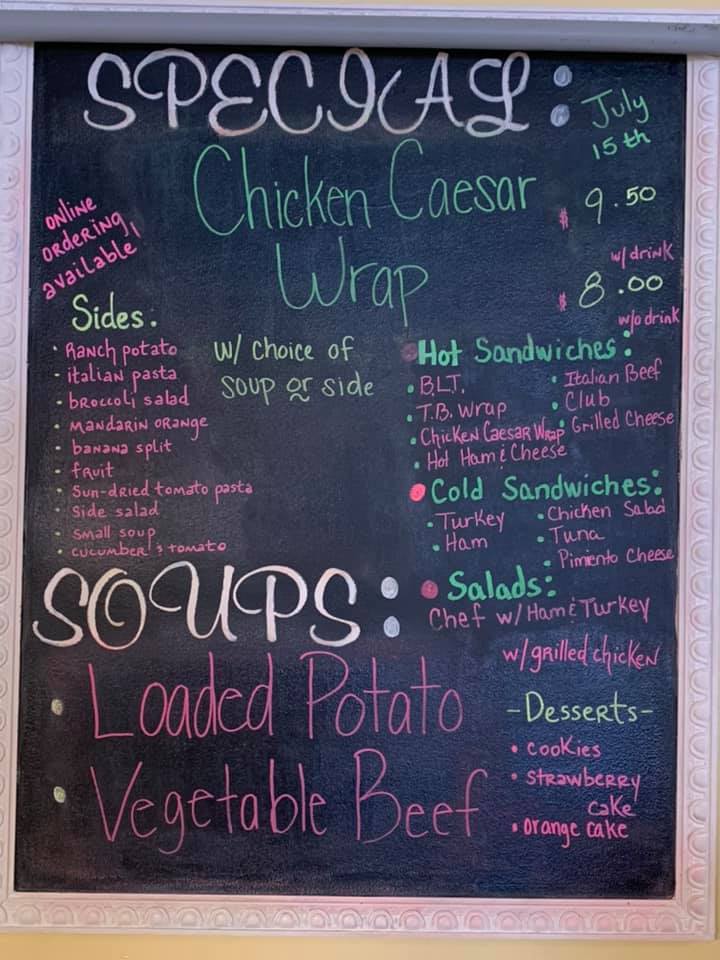 SPECIAL:
July
15th
Chicken Caesar
Wrap
$ 9.50
w/ drink
$ 8.00
w/o drink
online
ordering
available!
Sides:
• Ranch potato
• italian pasta
• broccoli salad
• Mandarin orange
• banana split
• fruit
• Sun-dried tomato pasta
• Side salad
• Small soup
• cucumber & tomato
w/ choice of
soup or side
• Hot Sandwiches:
• B.L.T.
• T.B. Wrap
• Chicken Caesar Wrap
• Hot Ham & Cheese
• Italian Beef
• Club
• Grilled Cheese
• Cold Sandwiches:
• Turkey
• Ham
• Chicken Salad
• Tuna
• Pimiento Cheese
• Salads:
Chef w/ Ham & Turkey
w/ grilled chicken
SOUPS:
• Loaded Potato
• Vegetable Beef
-Desserts-
• cookies
• strawberry
cake
• orange cake